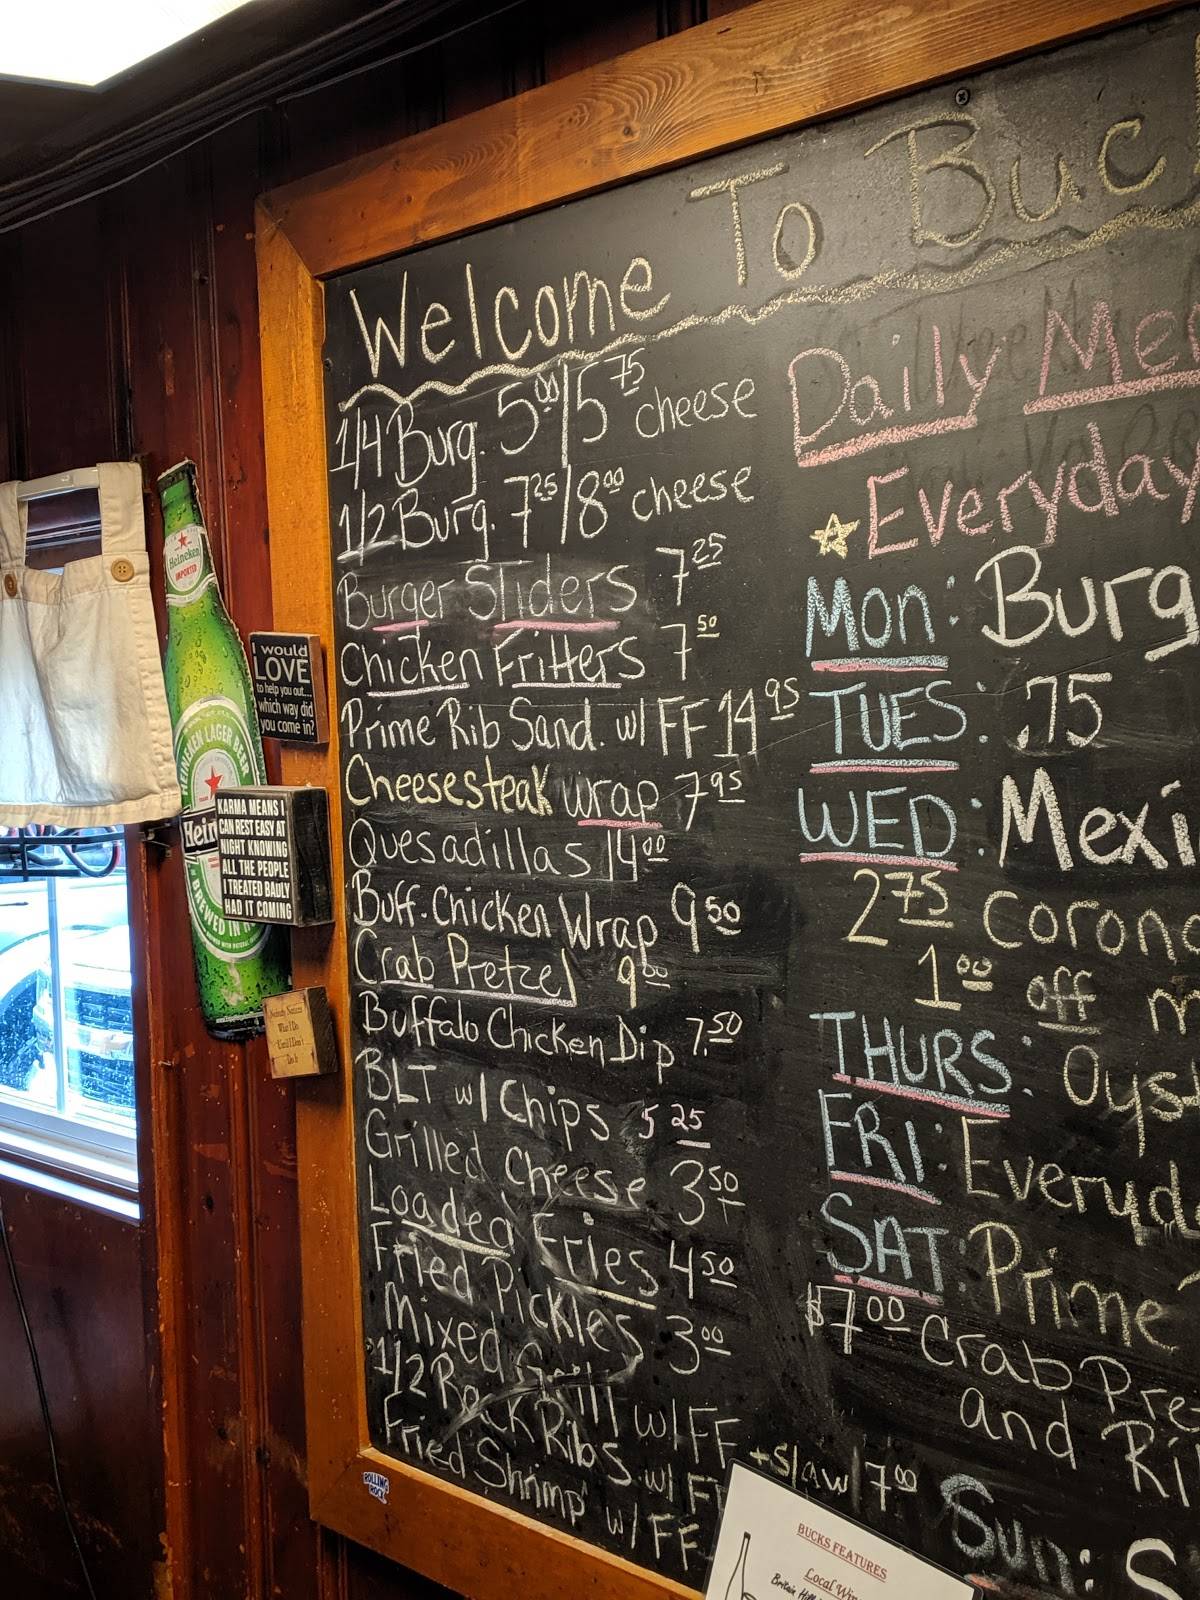 Welcome To Buc
1/4 Burg. 5.00/5.75 cheese
1/2 Burg. 7.25/8.00 cheese
Burger Sliders 7.25
Chicken Fritters 7.50
Prime Rib Sand. w/ FF 14.95
Cheesesteak wrap 7.95
Quesadillas 14.00
Buff. Chicken Wrap 9.50
Crab Pretzel 9.00
Buffalo Chicken Dip 7.50
BLT w/ Chips 5.25
Grilled Cheese 3.50
Loaded Fries 4.50
Fried Pickles 3.00
Mixed Grill w/ FF
1/2 Rack Ribs w/ FF + Slaw 17.00
Fried Shrimp w/ FF
Daily Me
Everyday
Mon: Burg
TUES: .75
WED: Mexi
2.75 Coron
1.00 off
THURS: Oyst
FRI: Everyd
SAT: Prime
$7.00 Crab Pre
and Ri
Sun: S
BUCKS FEATURES
Local Win
Heineken
IMPORTED
HEINEKEN LAGER BEER
Hein
BREWED IN H
I would
LOVE
to help you out...
which way did
you come in?
KARMA MEANS I
CAN REST EASY AT
NIGHT KNOWING
ALL THE PEOPLE
I TREATED BADLY
HAD IT COMING
Nobody Notices
What I Do
Until I Don't
Do It
ROLLING
ROCK